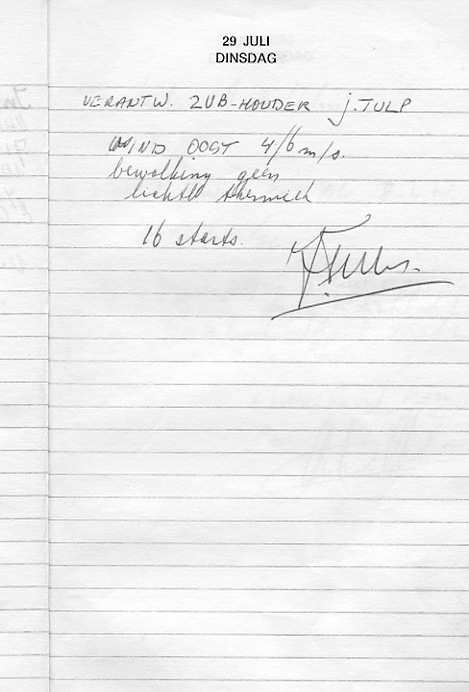 29 JULI
DINSDAG
VERANTW. ZUB-HOUDER J. TULP
WIND OOST 4/6 m/s.
bewolking geen
lichte thermiek
16 starts.